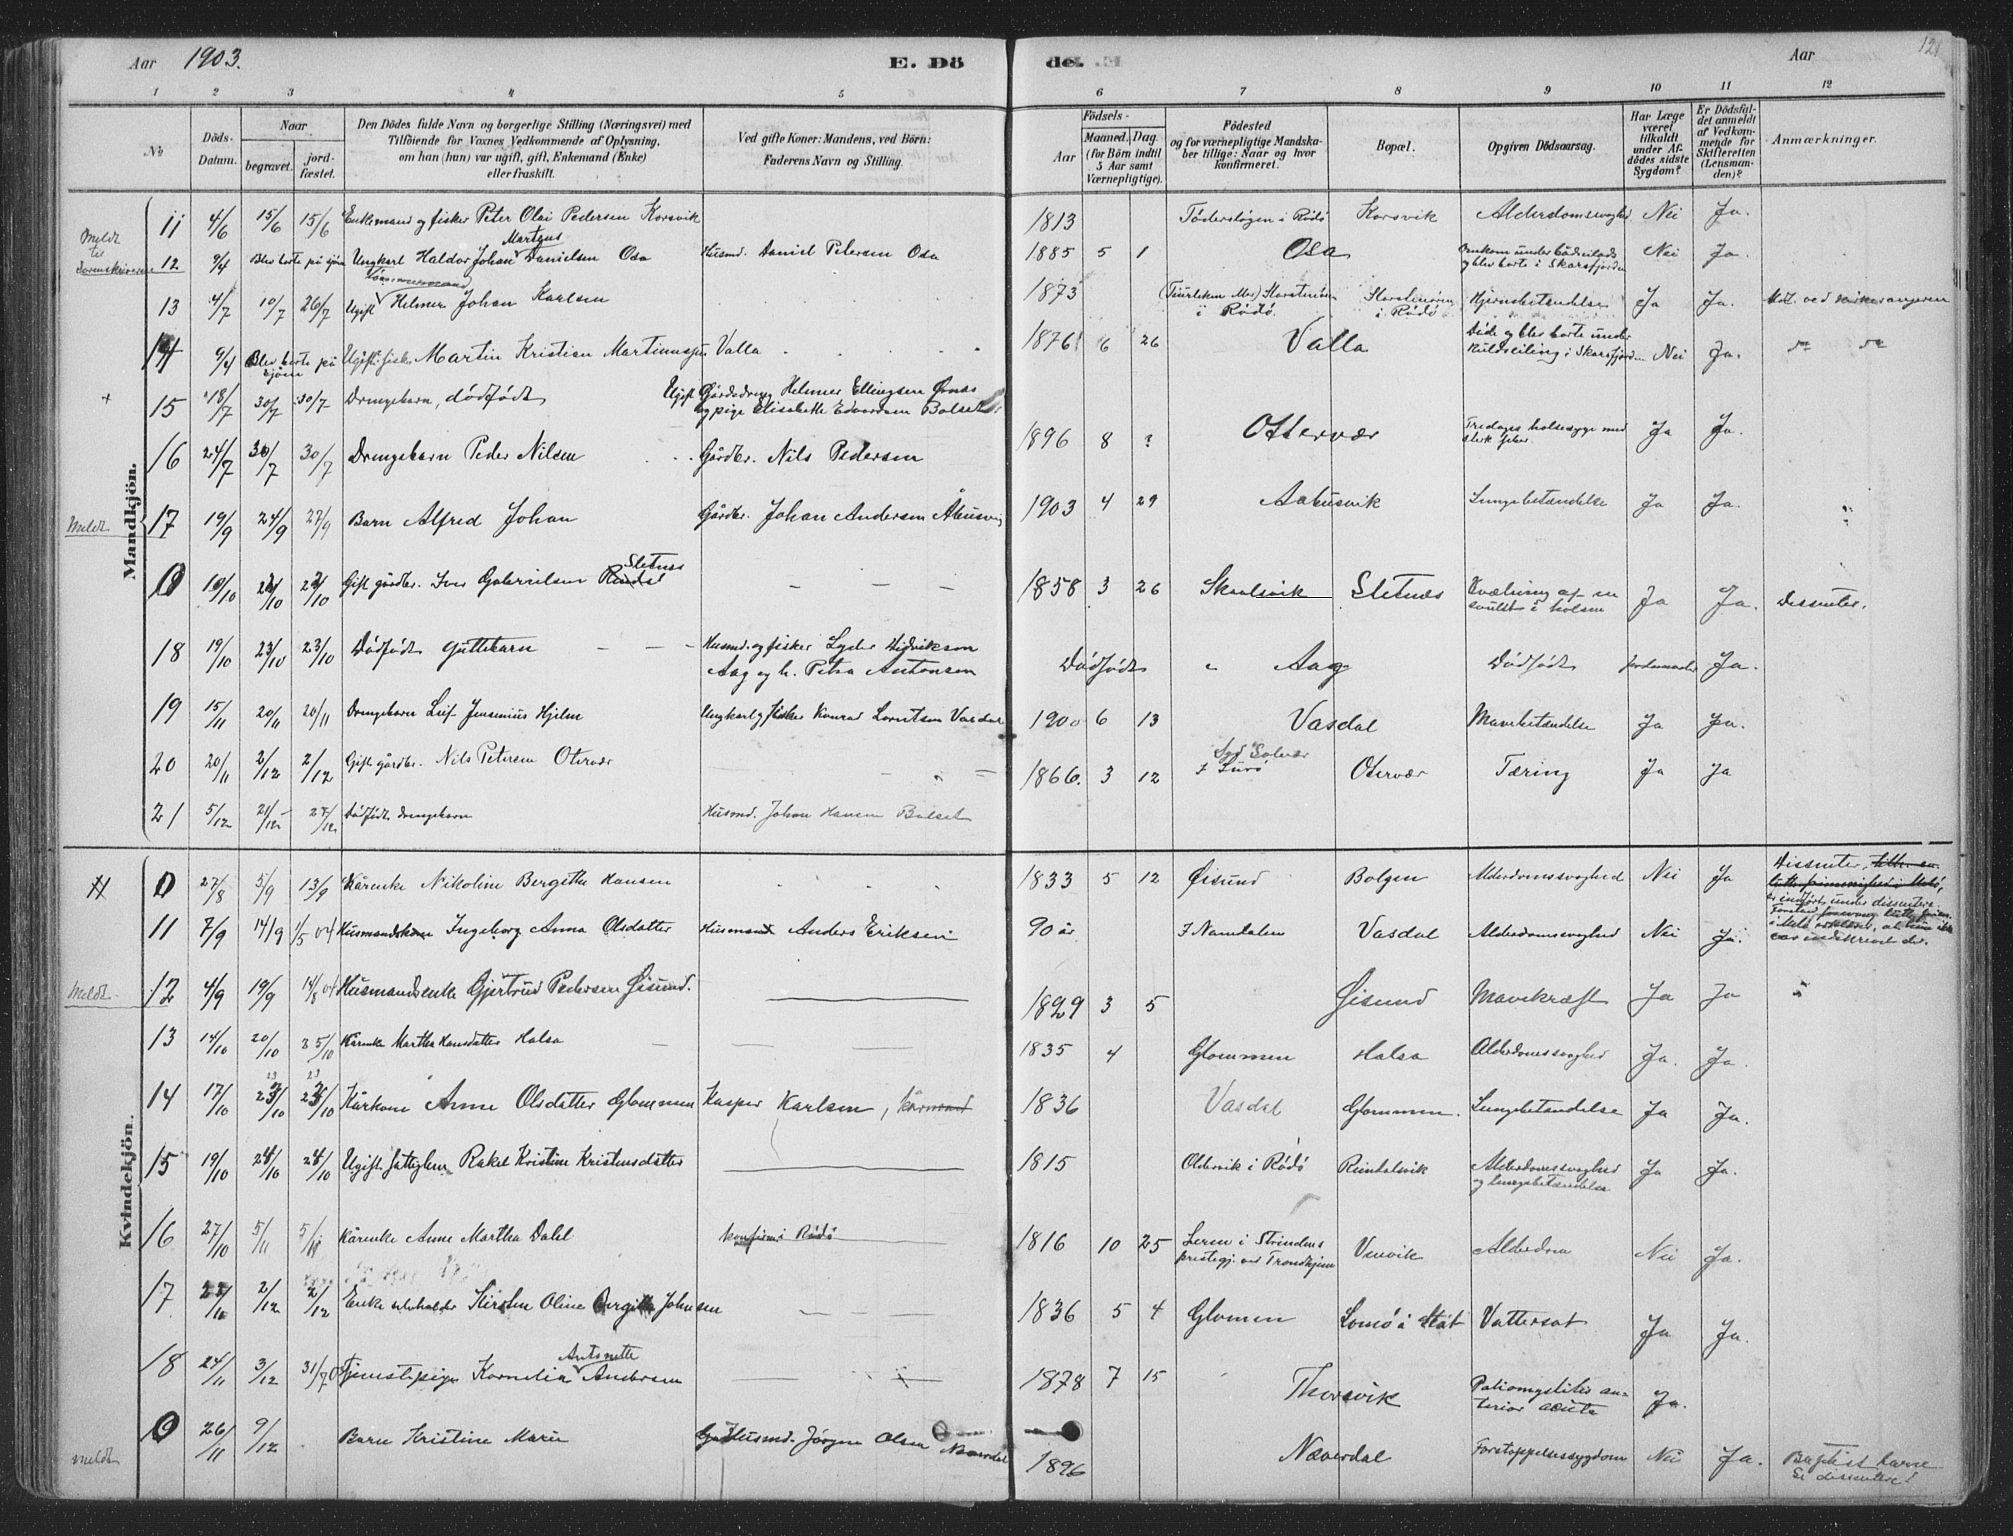 Aar 1903. E. Dö de. Aar 121
1 2 3 4 5 6 7 8 9 10 11 12
No
Döds-Datum.
Naar
begravet.
jord-fæstet.
Den Dödes fulde Navn og borgerlige Stilling (Næringsvei) med
Tilföiende for Voxnes Vedkommende af Oplysning,
om han (hun) var ugift, gift, Enkemand (Enke)
eller fraskilt.
Ved gifte Koner: Mandens, ved Börn:
Faderens Navn og Stilling.
Födsels-
Aar
Maaned. Dag.
(for Börn indtil
5 Aar samt
Værnepligtige).
Födested
og for værnepligtige Mandska-
ber tillige: Naar og hvor
konfirmeret.
Bopæl.
Opgiven Dödsaarsag.
Har Læge
været
tilkaldt
under Af-
dödes sidste
Sygdom?
Er Dödsfal-
det anmeldt
af Vedkom-
mende for
Skifteretten
(Lensman-
den)?
Anmærkninger.
Mandkjön.
11 4/6 15/6 15/6 Enkemand og fisker Peter Olai Pedersen Korsvik 1813 i Rödö Korsvik Alderdomssvaghed Nei Ja.
Meldt til Sorenskriveren 12 9/4 Blev borte på sjøen Ungkarl Haldor Johan Martens Danielsen Osa Husmd. Daniel Petersen Osa 1885 5 1 Osa Omkom under og blev borte i Skarsfjorden Nei Ja.
13 4/7 10/7 26/7 Ugift Helmer Johan Karlsen 1873 Storstenøren i Rödö Storstenøren i Rödö Hjernebetændelse Ja Ja.
14 9/4 Blev borte på sjøen Ugift fisker Martin Kristian Martinussen Valla 1876 6 26 Valla Døde og blev borte under kuldseiling i Skarsfjorden Nei Ja. do do
+ 15 18/7 30/7 30/7 Drengebarn, dödfödt Ugift Gårdsdreng Helmer Ellingsen Ørnes
og pige Elisabeth Edvardsen Bolset
16 24/7 30/7 30/7 Drengebarn Peder Nilsen Gårdbr. Nils Pedersen 1896 8 ? Ottervær Tredages halssyge med sterk feber Ja Ja.
Meldt 17 19/9 24/9 27/9 Barn Alfred Johan Gårdbr. Johan Andersen Åkusvig 1903 4 29 Aakusvik Lungebetændelse Ja Ja.
0 10/10 24/10 24/10 Gift gårdbr. Iver Gabrielsen Sletnes 1858 3 26 Skaalsvik Sletnæs Kvælning af en svulst i halsen Ja Ja. Dissenter.
18 19/10 23/10 23/10 Dödfödt guttebarn Husmd. og fisker Lyder Didrikson
Aag og h. Petra Antonsen Dödfödt Aag Dödfödt Jordemoder Ja.
19 15/11 20/11 20/11 Drengebarn Leif Jensenius Hjelm Ungkarl og fisker Konrad Lorntsen Vasdal 1900 6 13 Vasdal Mavebetændelse Ja Ja.
20 20/11 2/12 2/12 Gift gårdbr. Nils Petersen Otervær 1866. 3 12 Syd Solvær I Lurö Otervær Tæring Ja Ja
21 5/12 21/12 27/12 Dödfödt drengebarn Husmd. Johan Hansen Bolset
Kvindekjön.
0 27/8 5/9 13/9 Kårenke Nikoline Bergithe Hansen 1833 5 12 Øisund Bolgen Alderdomssvaghed Nei Ja Dissenter,
er indfört under dissentere.
11 7/9 14/9 1/5 04 Husmandskone Ingeborg Anna Olsdatter Husmand Anders Eriksen 90 år I Namdalen Vasdal Alderdomssvaghed Nei Ja.
Meldt. 12 4/9 19/9 14/8 04 Husmandsenke Gjertrud Pedersen Øisund. 1829 3 5 Øisund Mavekræft Ja Ja
13 14/10 20/10 25/10 Kårenke Martha Hansdatter Halsa 1835 4 Glommen Halsa Alderdomssvaghed Ja. Ja.
14 17/10 23/10 23/10 Kårkone Anne Olsdatter Glommen Kasper Karlsen, kårmand 1836 Vasdal Glommen. Lungebetændelse Ja Ja.
15 19/10 24/10 24/10 Ugift fattiglem Rakel Kristine Kristensdatter 1815 Oldervik i Rödö Reindalsvik Alderdomssvaghed og lungebetændelse Ja Ja.
16 27/10 5/11 5/11 Kårenke Anne Martha Dahl konfirm. i Rödö 1816 10 25 Leren i Strindens prestegj. ved Trondhjem Vænvik Alderdom Nei Ja.
17 27/11 2/12 2/12 Enke Kirsten Oline Bergitte Johnsen 1836 5 4 Glomen Vattersot Ja Ja.
18 24/11 3/12 31/7 Tjenestepige Kornelia Antonette Andersen 1878 7 15 Thorsvik Poliomyelitis anterior acuta Ja.
meldt 0 26/11 9/12 Barn Kristine Marie Husmd. Jörgen Olsen Næverdal 1896 Næverdal Forstoppelsessygdom Nei Ja. Baptist barn
Ei dissenter!